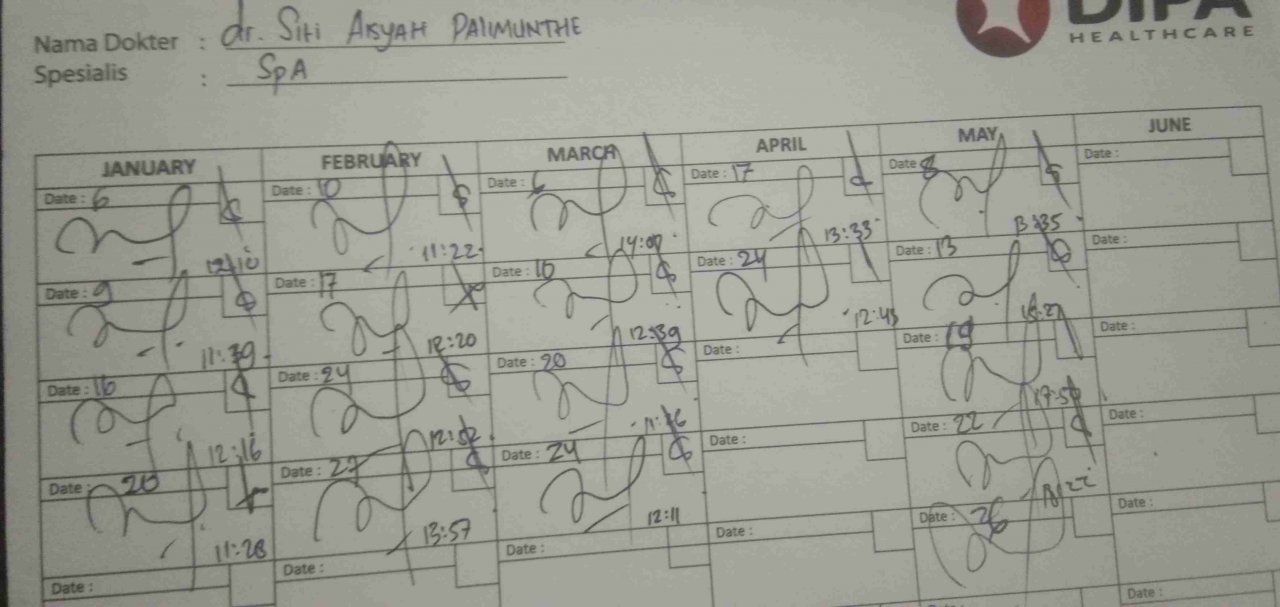 Nama Dokter : dr. Siti Aisyah DALIMUNTHE
DIPA
HEALTHCARE
Spesialis : SpA
JANUARY FEBRUARY MARCH APRIL MAY JUNE
Date : 6 Date : 10 Date : 6 Date : 17 Date : 8 Date :
12:10 11:22 14:07 13:33 13:35
Date : 9 Date : 17 Date : 16 Date : 24 Date : 13 Date :
11:39 12:20 12:39 12:43
Date : 16 Date : 24 Date : 20 Date : Date : 19 Date :
12:16 12:52 17:50
Date : 20 Date : 27 Date : 24 Date : Date : 22 Date :
11:28 13:57 12:11
Date : Date : Date : Date : Date : 26 Date :
Date : Date :